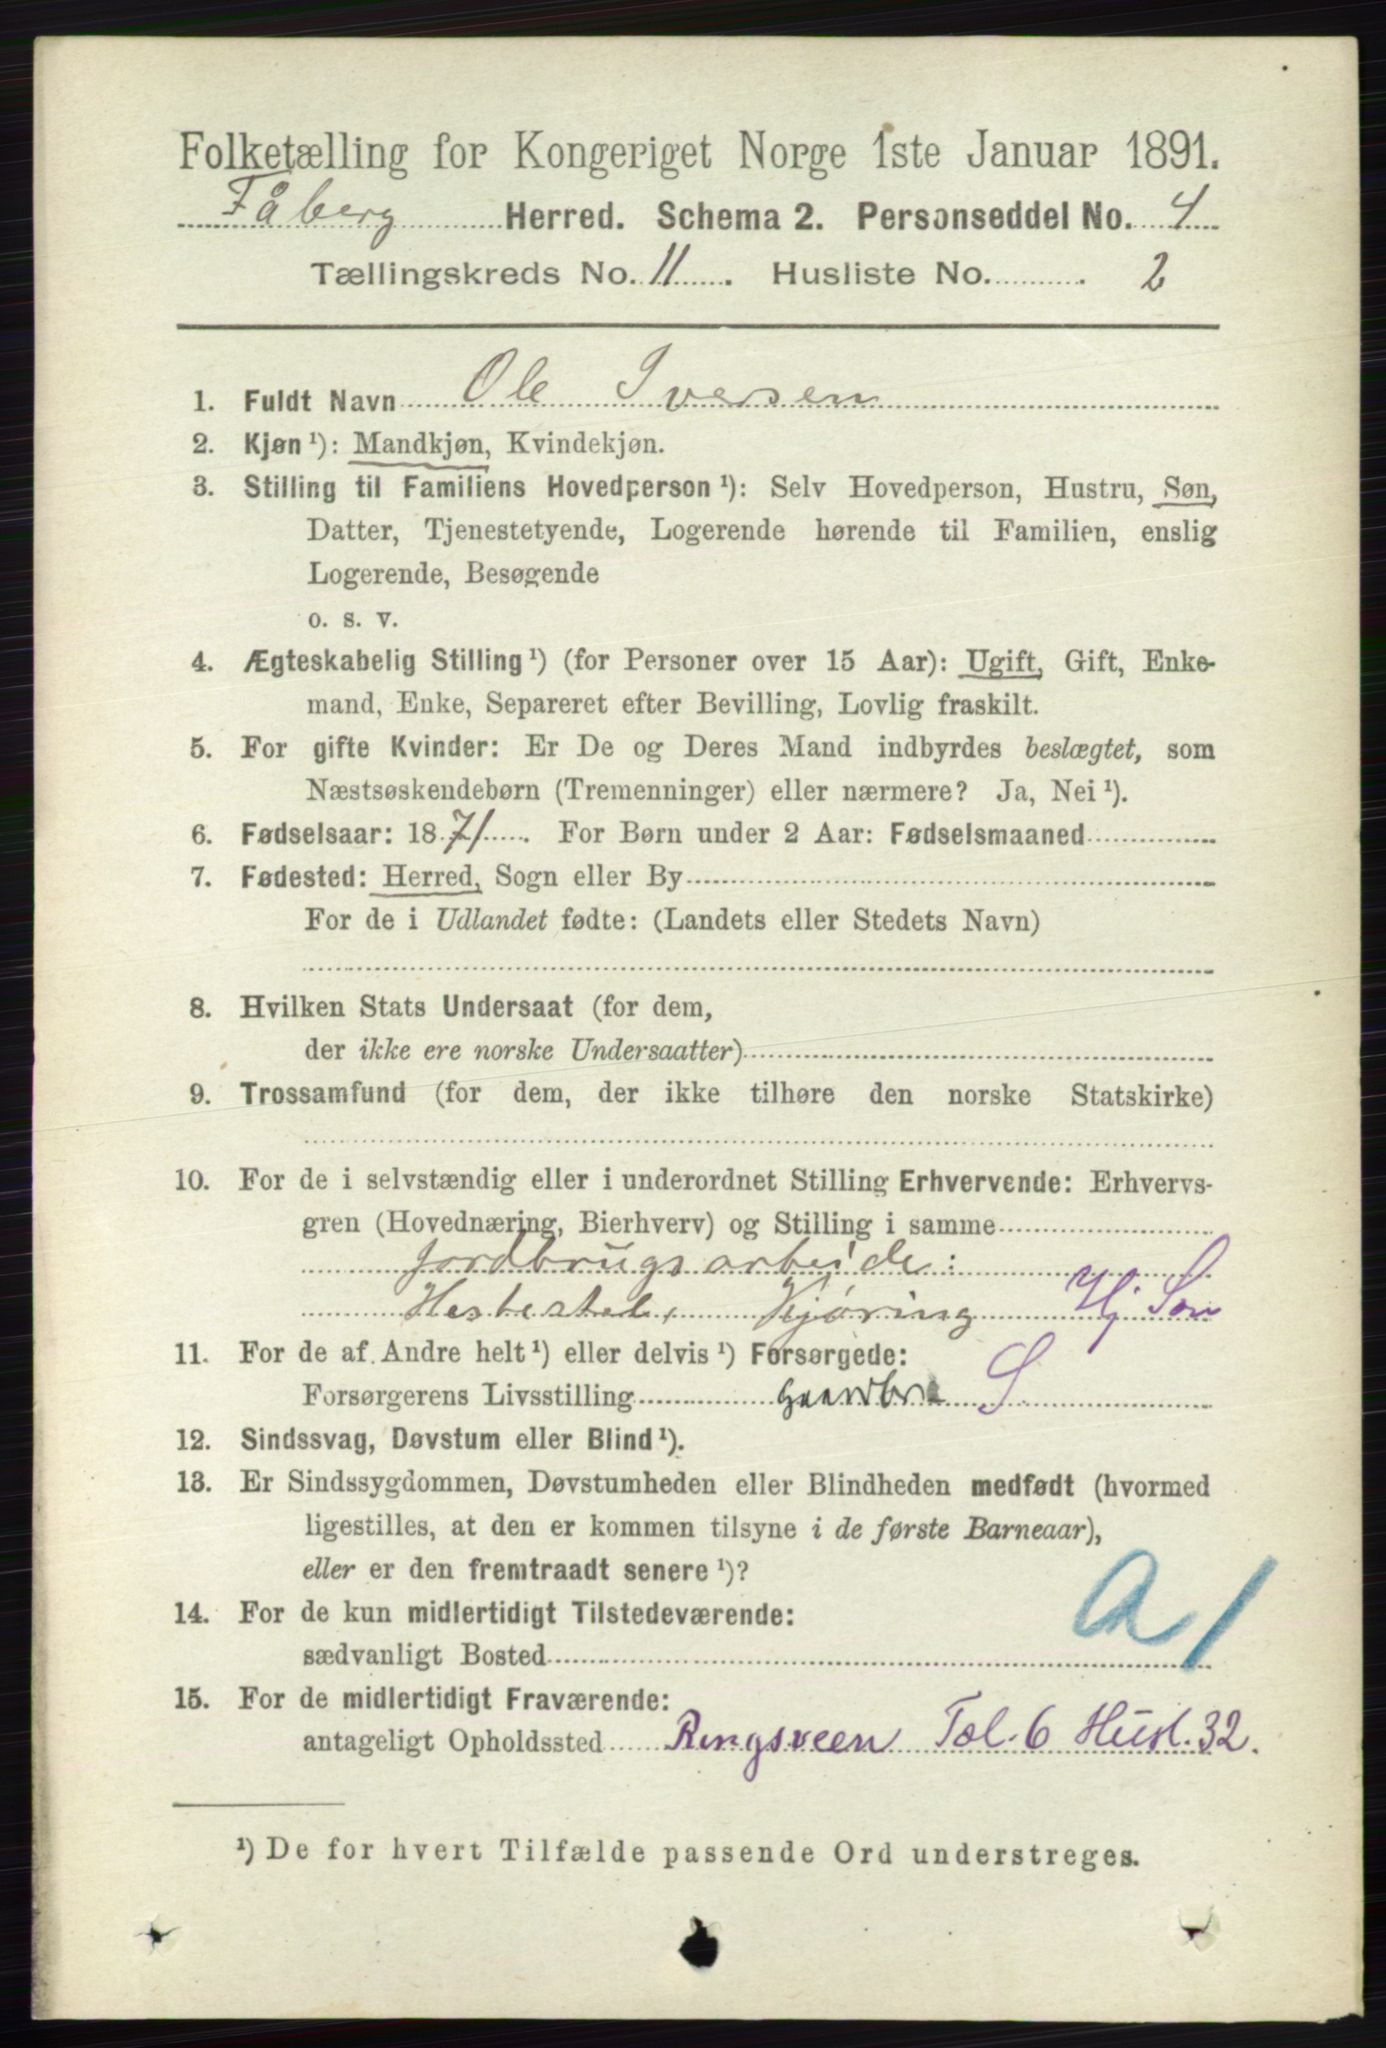 Folketælling for Kongeriget Norge 1ste Januar 1891.
Fåberg Herred. Schema 2. Personseddel No. 4
Tællingskreds No. 11. Husliste No. 2
1. Fuldt Navn Ole Iversen
2. Kjøn ¹): Mandkjøn, Kvindekjøn.
3. Stilling til Familiens Hovedperson ¹): Selv Hovedperson, Hustru, Søn,
Datter, Tjenestetyende, Logerende hørende til Familien, enslig
Logerende, Besøgende
o. s. v.
4. Ægteskabelig Stilling ¹) (for Personer over 15 Aar): Ugift, Gift, Enke-
mand, Enke, Separeret efter Bevilling, Lovlig fraskilt.
5. For gifte Kvinder: Er De og Deres Mand indbyrdes beslægtet, som
Næstsøskendebørn (Tremenninger) eller nærmere? Ja, Nei ¹).
6. Fødselsaar: 1871. For Børn under 2 Aar: Fødselsmaaned
7. Fødested: Herred, Sogn eller By
For de i Udlandet fødte: (Landets eller Stedets Navn)
8. Hvilken Stats Undersaat (for dem,
der ikke ere norske Undersaatter)
9. Trossamfund (for dem, der ikke tilhøre den norske Statskirke)
10. For de i selvstændig eller i underordnet Stilling Erhvervende: Erhvervs-
gren (Hovednæring, Bierhverv) og Stilling i samme
Jordbrugsarbeide:
Hestestel, Kjøring Hj Søn
11. For de af Andre helt ¹) eller delvis ¹) Forsørgede:
Forsørgerens Livsstilling Gaardbr S
12. Sindssvag, Døvstum eller Blind ¹).
13. Er Sindssygdommen, Døvstumheden eller Blindheden medfødt (hvormed
ligestilles, at den er kommen tilsyne i de første Barneaar),
eller er den fremtraadt senere ¹)?
14. For de kun midlertidigt Tilstedeværende:
sædvanligt Bosted
a 1
15. For de midlertidigt Fraværende:
antageligt Opholdssted Ringsveen Tæl. 6 Husl. 32.
¹) De for hvert Tilfælde passende Ord understreges.